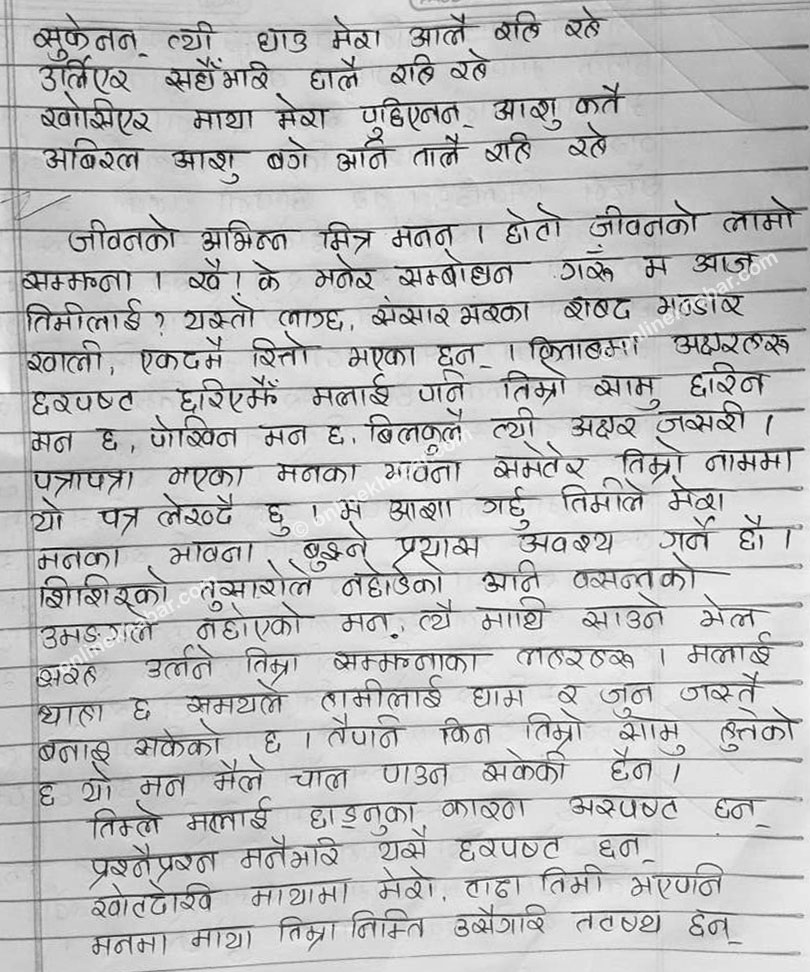 सुकेनन् त्यी घाउ मेरा आलै रहि रहे
उर्लिएर सधैँभरि छालै रहि रहे
खोसिएर माया मेरा पुछिएनन् आशु कतै
अबिरल आशु बगे अनि तालै रहि रहे
जीवनको अभिन्न मित्र मनन् । होतो जीवनको लामो
सम्झना । खै । के भनेर सम्बोधन गरूँ म आज
तिमीलाई ? यस्तो लाग्छ, संसार भरका शब्द भण्डार
खाली, एकदमै रित्तो भएका छन् । किताबमा अक्षरहरू
छरपष्ट छरिएझैँ मलाई पनि तिम्रो सामु छरिन
मन छ, पोखिन मन छ, बिलकुलै त्यी अक्षर जसरी ।
पत्रापत्रा भएका मनका भावना समेटेर तिम्रो नाममा
यो पत्र लेख्दै छु । म आशा गर्छु तिमीले मेरा
मनका भावना बुझ्ने प्रयास अवश्य गर्ने छौ ।
शिशिरको तुसारोले नछोडेको अनि वसन्तको
उमङ्गले नछोएको मन, त्यै माथि साउने भेल
सरह उर्लने तिम्रा सम्झनाका लहरहरू । मलाई
थाहा छ समयले हामीलाई घाम र जुन जस्तै
बनाइ सकेको छ । तैपनि किन तिम्रो सामु हुत्तेको
छ यो मन मैले चाल पाउन सकेकी छैन ।
तिम्ले मलाई छाड्नुका कारण अस्पष्ट छन्
प्रश्नैप्रश्न मनैभरि यसै छरपष्ट छन्
खोटदेखि मायामा मेरो, टाढा तिमी भएपनि
मनमा माया तिम्रा निम्ति उसैगरि तटष्थ छन्
© onlinekhabar.com
onlinekhabar.com
onlinekhabar.com